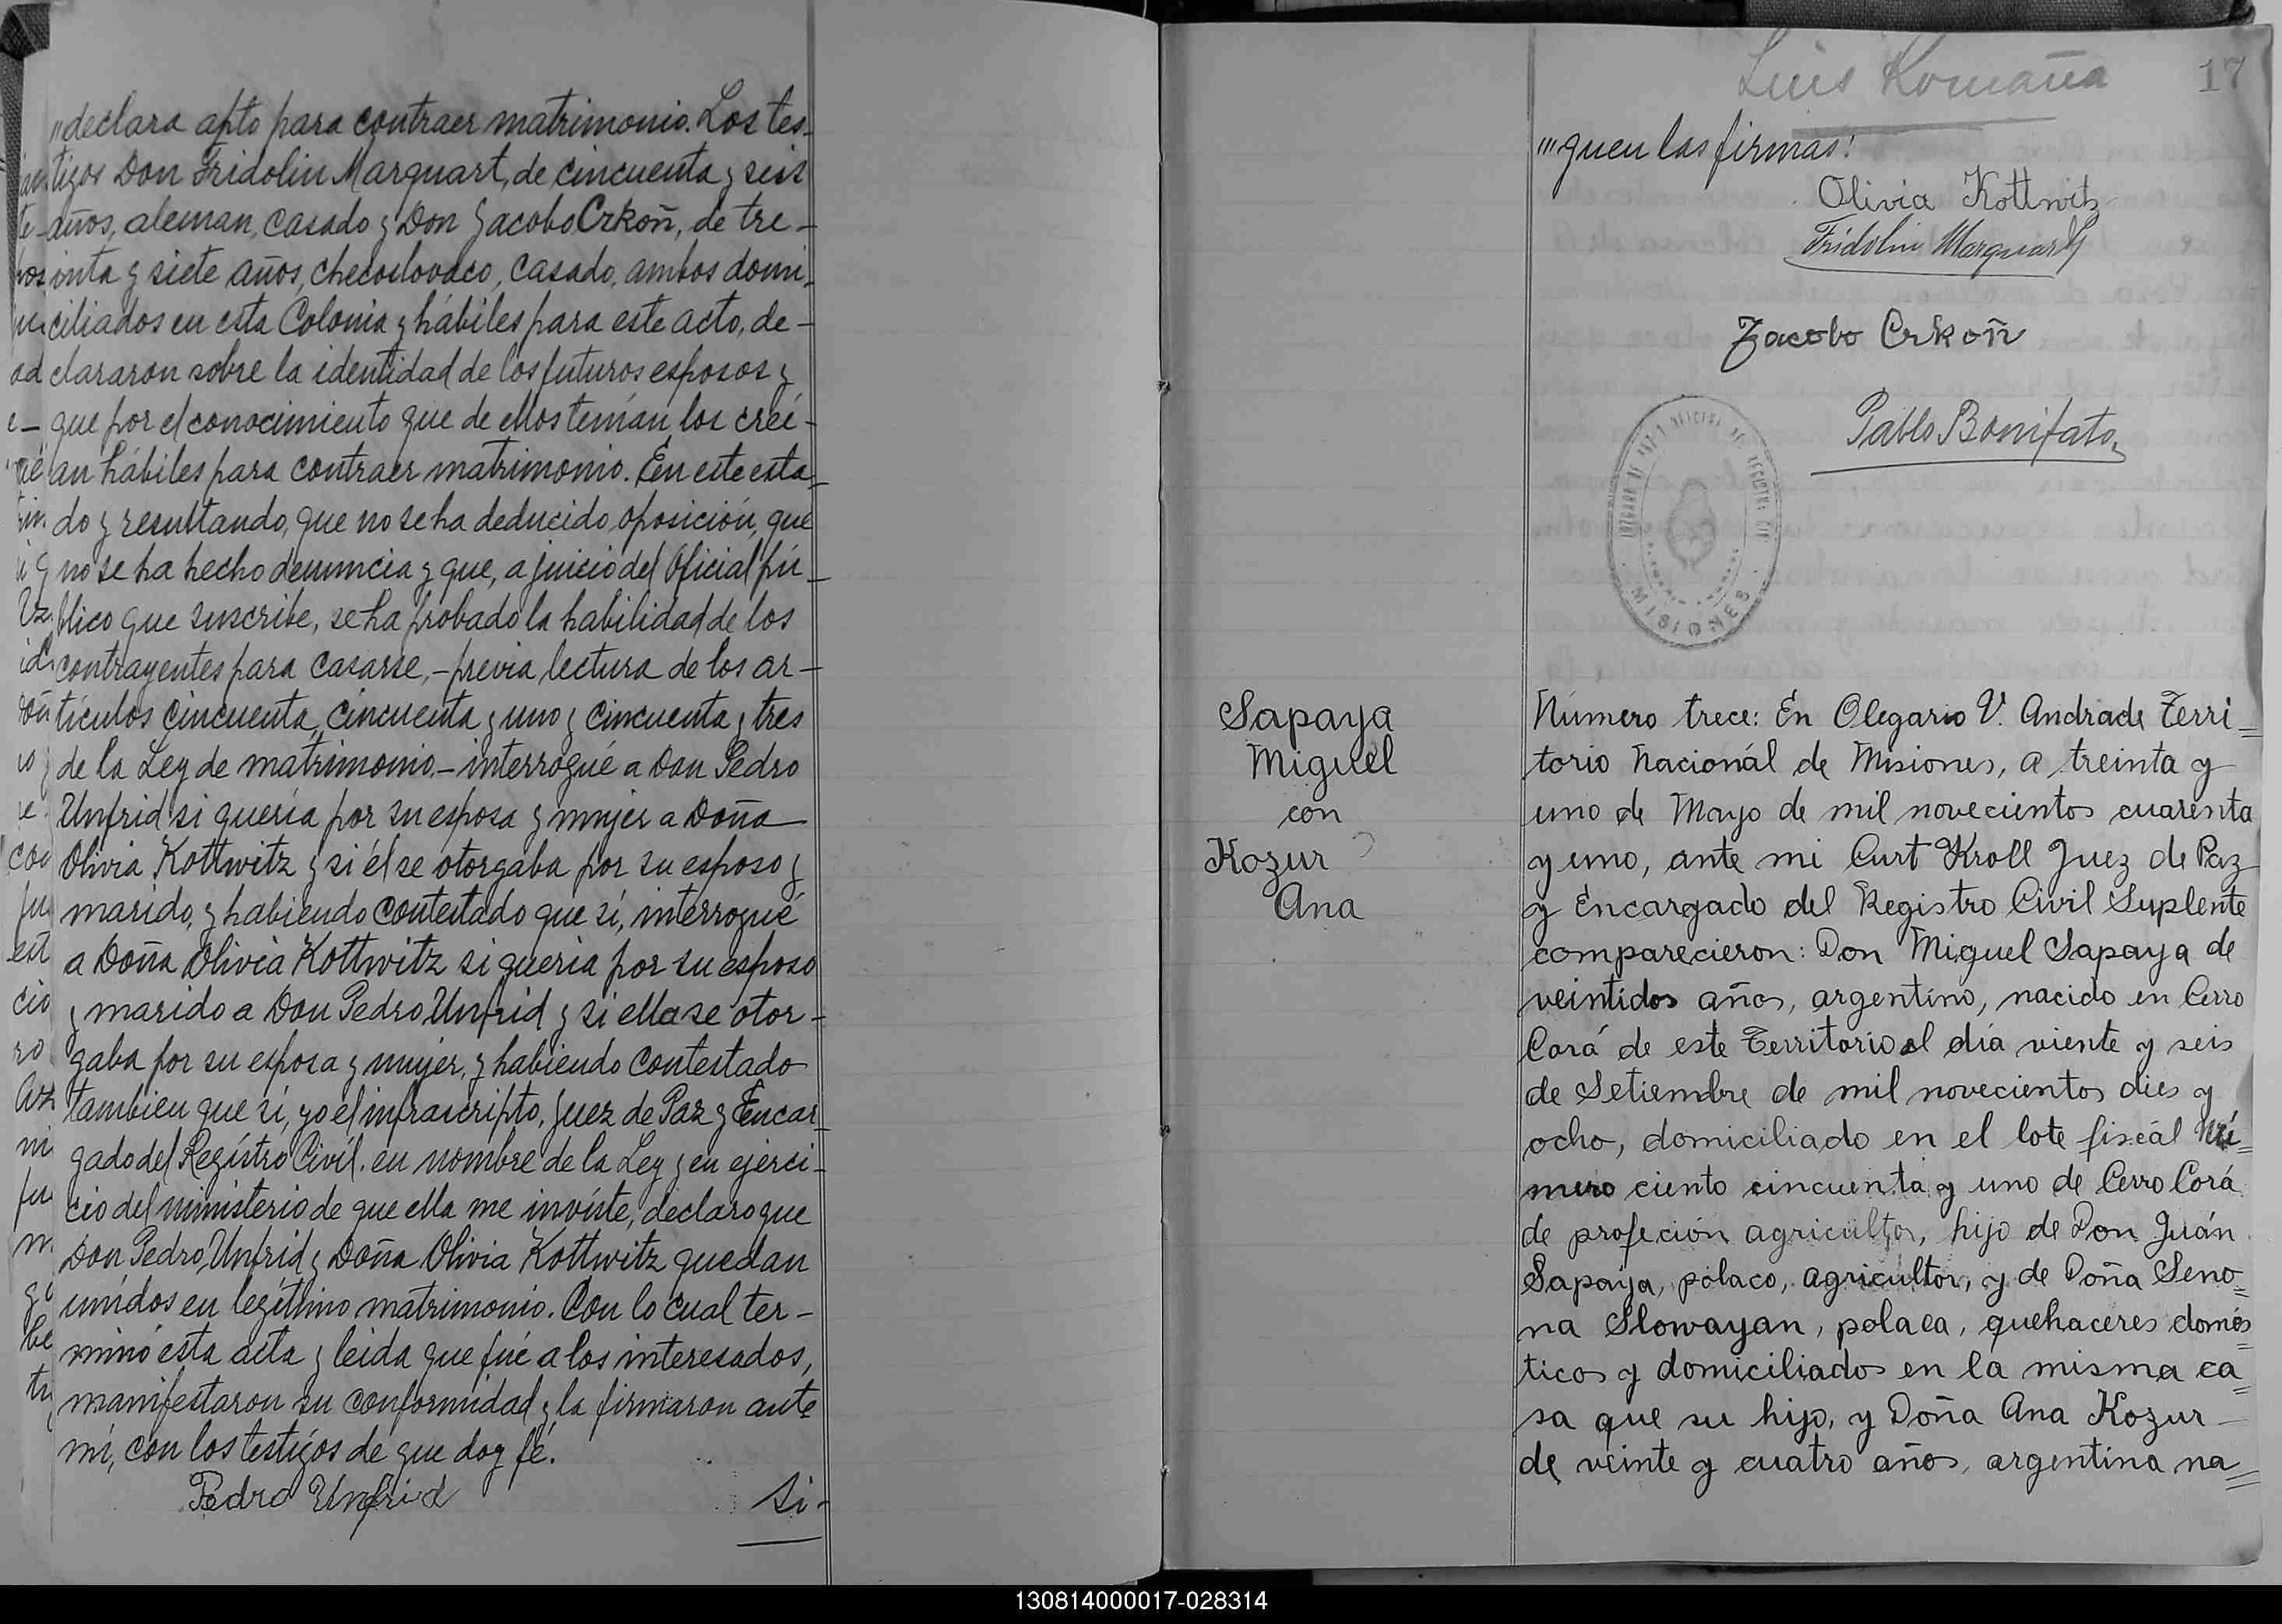 "declara apto para contraer matrimonio. Los tes-
tigos Don Fridolin Marquart, de cincuenta y seis
años, aleman, casado y Don Jacobo Crkoñ, de tre-
inta y siete años, checoslovaco, casado, ambos domi-
ciliados en esta Colonia y hábiles para este acto, de-
clararon sobre la identidad de los futuros esposos y
que por el conocimiento que de ellos tenían los creí-
an hábiles para contraer matrimonio. En este esta-
do y resultando, que no se ha deducido oposición, que
no se ha hecho denuncia y que, a juicio del Oficial pú-
blico que suscribe, se ha probado la habilidad de los
contrayentes para casarse,- previa lectura de los ar-
tículos cincuenta, cincuenta y uno y cincuenta y tres
de la Ley de matrimonio.- interrogué a Don Pedro
Unfrid si quería por su esposa y mujer a Doña
Olivia Kottwitz y si él se otorgaba por su esposo y
marido, y habiendo contestado que sí, interrogué
a Doña Olivia Kottwitz si queria por su esposo
y marido a Don Pedro Unfrid y si ella se otor-
gaba por su esposa y mujer, y habiendo contestado
tambien que sí, yo el infrascripto, Juez de Paz y Encar-
gado del Regístro Civíl. en nombre de la Ley y en ejerci-
cio del ministerio de que ella me inviste, declaro que
Don Pedro Unfrid y Doña Olivia Kottwitz quedan
unídos en legítimo matrimonio. Con lo cual ter-
minó esta acta y leida que fué a los interesados,
manifestaron su conformidad y la firmaron ante
mí, con los testigos de que doy fé.
Pedro Unfrid
si-
Luis Romaña
17
"'quen las firmas:
Olivia Kottwitz
Fridolin Marquart
Jacobo Crkoñ
Pablo Bonifato
MISIONES
Sapaya
Miguel
con
Kozur
Ana
Número trece: En Olegario V. Andrade Terri=
torio Nacionál de Misiones, a treinta y
uno de Mayo de mil novecientos cuarenta
y uno, ante mi Curt Kroll Juez de Paz
y Encargado del Registro Civil Suplente
comparecieron: Don Miguel Sapaya de
veintidos años, argentino, nacido en Cerro
Corá de este Territorio el día viente y seis
de Setiembre de mil novecientos dies y
ocho, domiciliado en el lote fiscál Nú=
mero ciento cincuenta y uno de Cerro Corá
de profeción agricultor, hijo de Don Juán
Sapaya, polaco, agricultor, y de Doña Seno=
na Slowayan, polaca, quehaceres domés=
ticos y domiciliados en la misma ca=
sa que su hijo, y Doña Ana Kozur
de veinte y cuatro años, argentina na=
130814000017-028314